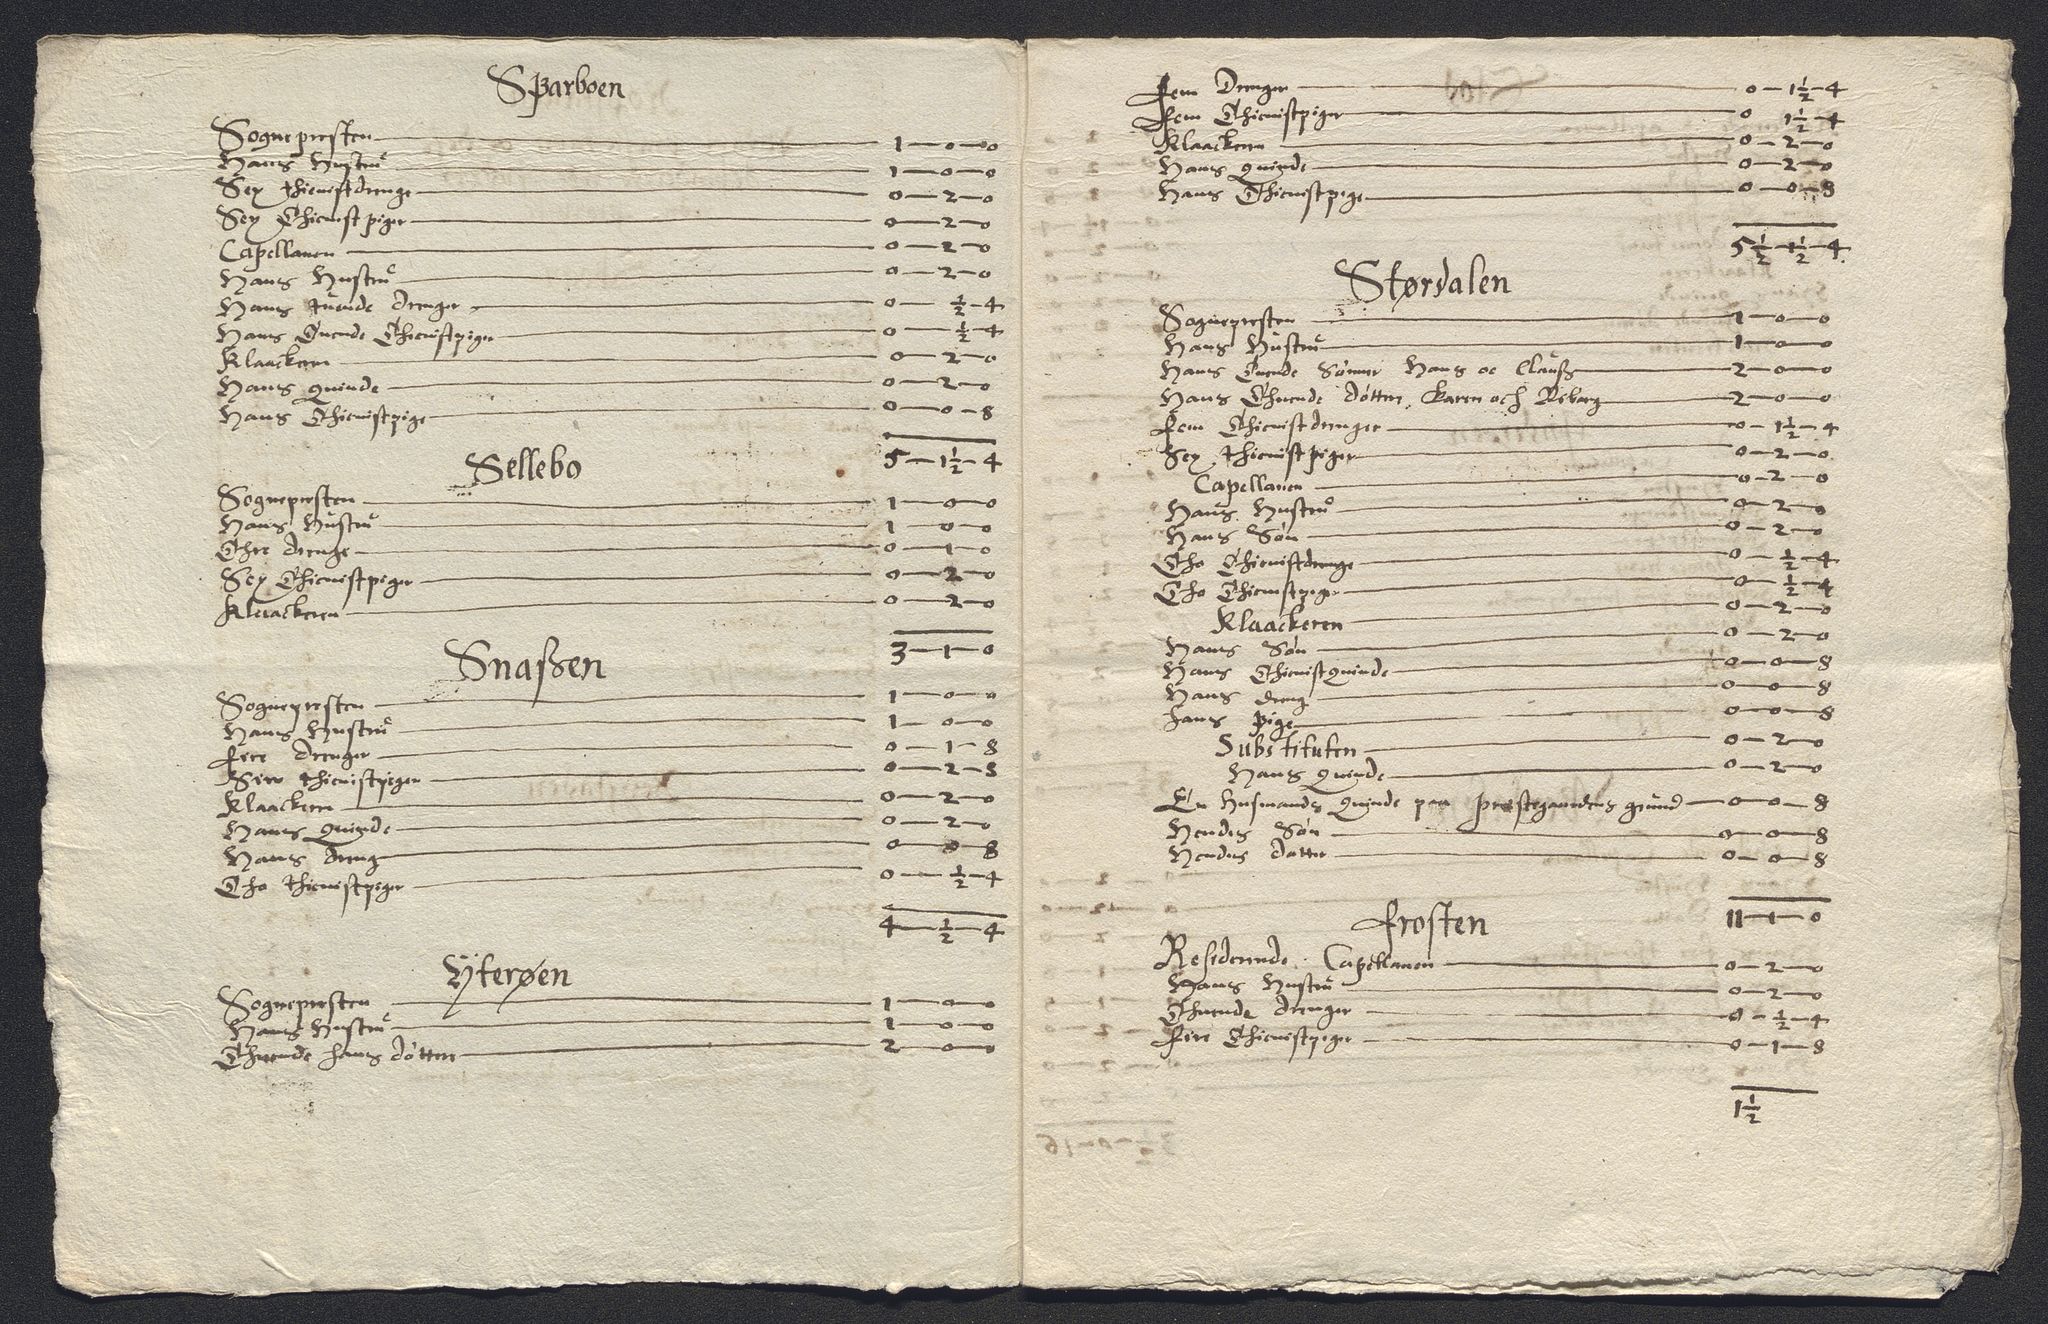 Sparboen
Sognepresten 1 — 0 — 0
Hans Hustru 1 — 0 — 0
Sex thienistdrenge 0 — 2 — 0
Sex Thienistpiger 0 — 2 — 0
Capellanen 0 — 2 — 0
Hans Hustru 0 — 2 — 0
Hans tuende drenger 0 — ½ — 4
Hans Tuende Thienistpiger 0 — ½ — 4
Klaackeren 0 — 2 — 0
Hans Quinde 0 — 2 — 0
Hans Thienistpige 0 — 0 — 8
5 — 1½ — 4
Sellebo
Sognepresten 1 — 0 — 0
Hans Hustru 1 — 0 — 0
Thre drenge 0 — 1 — 0
Sex Thienistpiger 0 — 2 — 0
Klaackeren 0 — 2 — 0
3 — 1 — 0
Snaßen
Sognepresten 1 — 0 — 0
Hans Hustru 1 — 0 — 0
fire drenger 0 — 1 — 8
Siw thienistpiger 0 — 2 — 8
Klaackeren 0 — 2 — 0
Hans Quinde 0 — 2 — 0
Hans dreng 0 — 0 — 8
Tho thienistpiger 0 — ½ — 4
4 — ½ — 4
Ÿterøen
Sognepresten 1 — 0 — 0
Hans Hustru 1 — 0 — 0
Thuende hans døttre 2 — 0 — 0
fem Drenger 0 — 1½ — 4
fem Thienistpiger 0 1½ — 4
Klaackeren 0 — 2 — 0
Hans Quinde 0 — 2 — 0
Hans Thienistpige 0 — 0 — 8
5½ — 1½ — 4
Størdalen
Sognepresten 1 — 0 — 0
Hans Hustru 1 — 0 — 0
Hans Tuende Sønner Hans oc Clauß 2 — 0 — 0
Hans Thuende døttre, Karen och 2 — 0 — 0
fem Thienistdrenger 0 — 1½ — 4
Sex thienistpiger 0 — 2 — 0
Capellanen 0 — 2 — 0
Hans Hustru 0 — 2 — 0
Hans Søn 0 — 2 — 0
Tho Thienistdrenge 0 — ½ — 4
Tho Thienistpiger 0 — ½ — 4
Klaackeren 0 — 2 — 0
Hans Søn 0 — 2 — 0
Hans Thienistquinde 0 — 0 — 8
Hans dreng 0 — 0 — 8
hans pige 0 — 0 — 8
Substituten 0 — 2 — 0
Hans Quinde 0 — 2 — 0
En Husmands Quinde paa prestegaardens grund 0 — 0 — 8
Hendes Søn 0 — 0 — 8
Hendes datter 0 — 0 — 8
11 — 1 — 0
frosten
Residerende Capellanen 0 — 2 — 0
Hans Hustru 0 — 2 — 0
Thuende drenger 0 — ½ — 4
fire Thienistpiger 0 — 1 — 8
1½